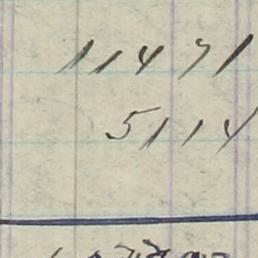 11471
5114